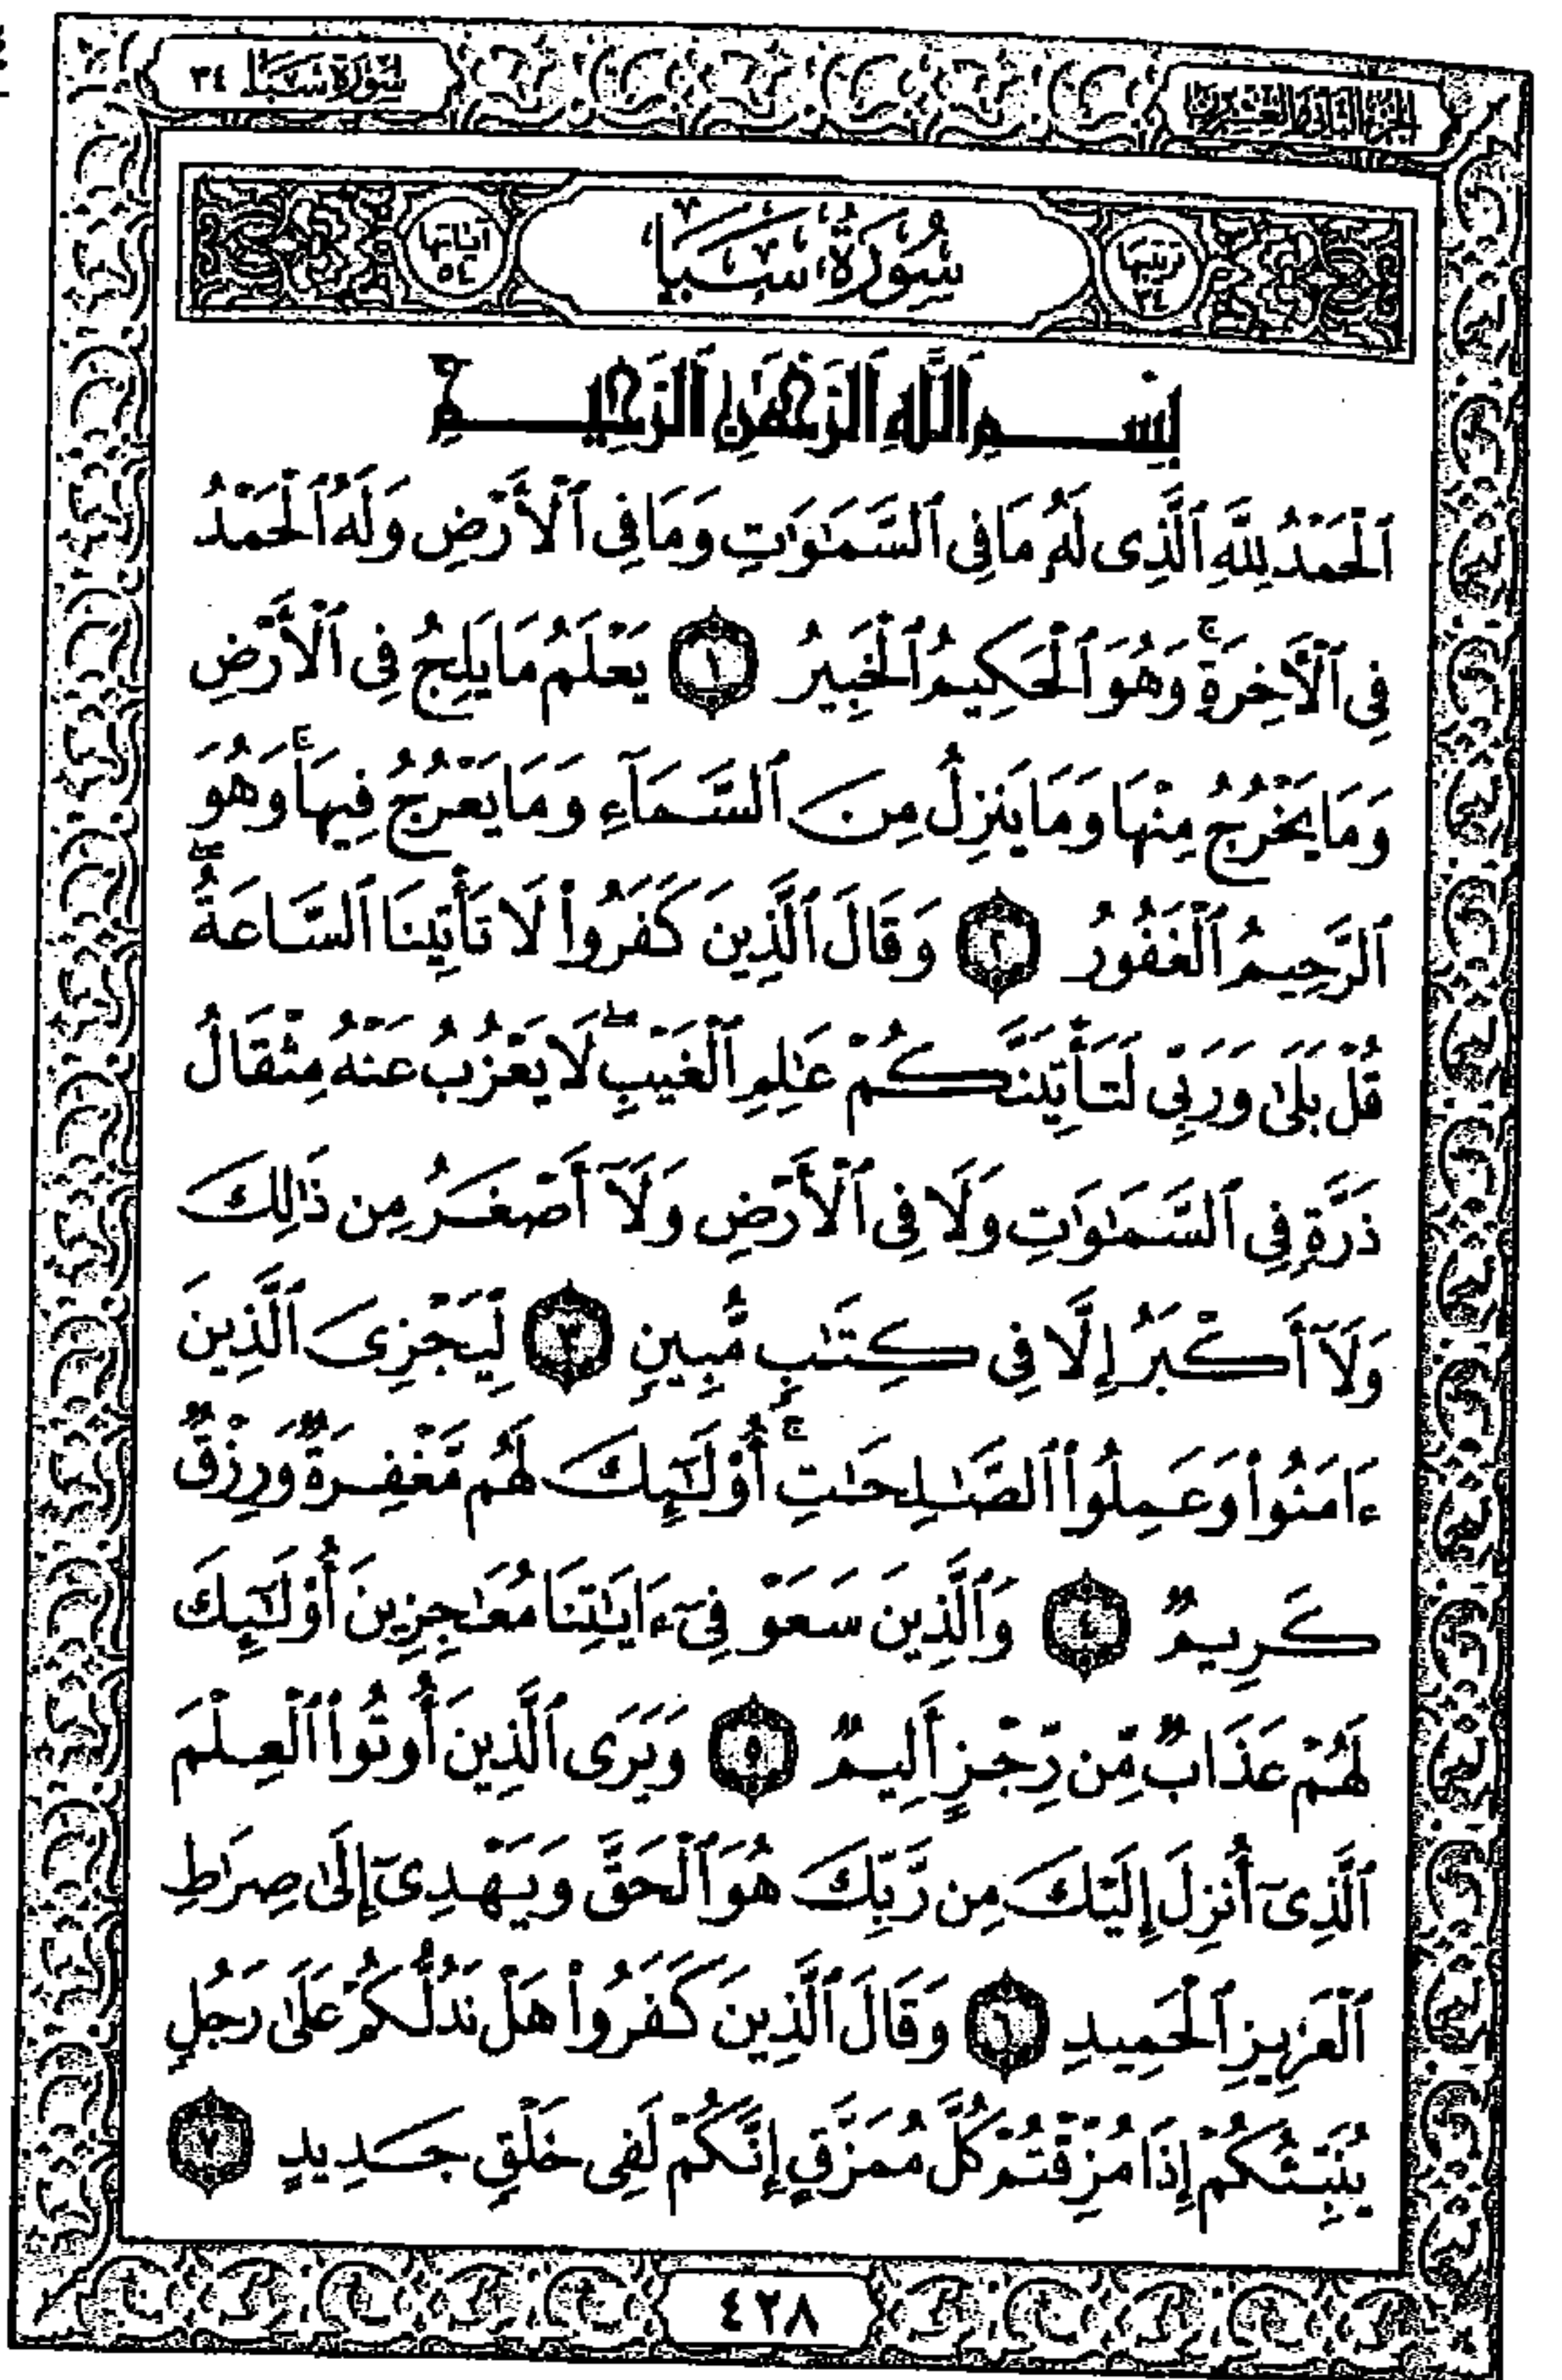 الجزء الثاني والعشرون
سورة سبأ ٣٤
ترتيبها
٣٤
سُورَةُ سَبَإٍ
آياتها
٥٤
بِسْمِ ٱللَّهِ ٱلرَّحْمَٰنِ ٱلرَّحِيمِ
ٱلْحَمْدُ لِلَّهِ ٱلَّذِى لَهُۥ مَا فِى ٱلسَّمَٰوَٰتِ وَمَا فِى ٱلْأَرْضِ وَلَهُ ٱلْحَمْدُ
فِى ٱلْأَخِرَةِ ۚ وَهُوَ ٱلْحَكِيمُ ٱلْخَبِيرُ ١ يَعْلَمُ مَا يَلِجُ فِى ٱلْأَرْضِ
وَمَا يَخْرُجُ مِنْهَا وَمَا يَنزِلُ مِنَ ٱلسَّمَآءِ وَمَا يَعْرُجُ فِيهَا ۚ وَهُوَ
ٱلرَّحِيمُ ٱلْغَفُورُ ٢ وَقَالَ ٱلَّذِينَ كَفَرُوا۟ لَا تَأْتِينَا ٱلسَّاعَةُ ۖ
قُلْ بَلَىٰ وَرَبِّى لَتَأْتِيَنَّكُمْ عَٰلِمِ ٱلْغَيْبِ ۖ لَا يَعْزُبُ عَنْهُ مِثْقَالُ
ذَرَّةٍ فِى ٱلسَّمَٰوَٰتِ وَلَا فِى ٱلْأَرْضِ وَلَآ أَصْغَرُ مِن ذَٰلِكَ
وَلَآ أَكْبَرُ إِلَّا فِى كِتَٰبٍ مُّبِينٍ ٣ لِّيَجْزِىَ ٱلَّذِينَ
ءَامَنُوا۟ وَعَمِلُوا۟ ٱلصَّٰلِحَٰتِ ۚ أُو۟لَٰٓئِكَ لَهُم مَّغْفِرَةٌ وَرِزْقٌ
كَرِيمٌ ٤ وَٱلَّذِينَ سَعَوْ فِىٓ ءَايَٰتِنَا مُعَٰجِزِينَ أُو۟لَٰٓئِكَ
لَهُمْ عَذَابٌ مِّن رِّجْزٍ أَلِيمٌ ٥ وَيَرَى ٱلَّذِينَ أُوتُوا۟ ٱلْعِلْمَ
ٱلَّذِىٓ أُنزِلَ إِلَيْكَ مِن رَّبِّكَ هُوَ ٱلْحَقَّ وَيَهْدِىٓ إِلَىٰ صِرَٰطِ
ٱلْعَزِيزِ ٱلْحَمِيدِ ٦ وَقَالَ ٱلَّذِينَ كَفَرُوا۟ هَلْ نَدُلُّكُمْ عَلَىٰ رَجُلٍ
يُنَبِّئُكُمْ إِذَا مُزِّقْتُمْ كُلَّ مُمَزَّقٍ إِنَّكُمْ لَفِى خَلْقٍ جَدِيدٍ ٧
٤٢٨